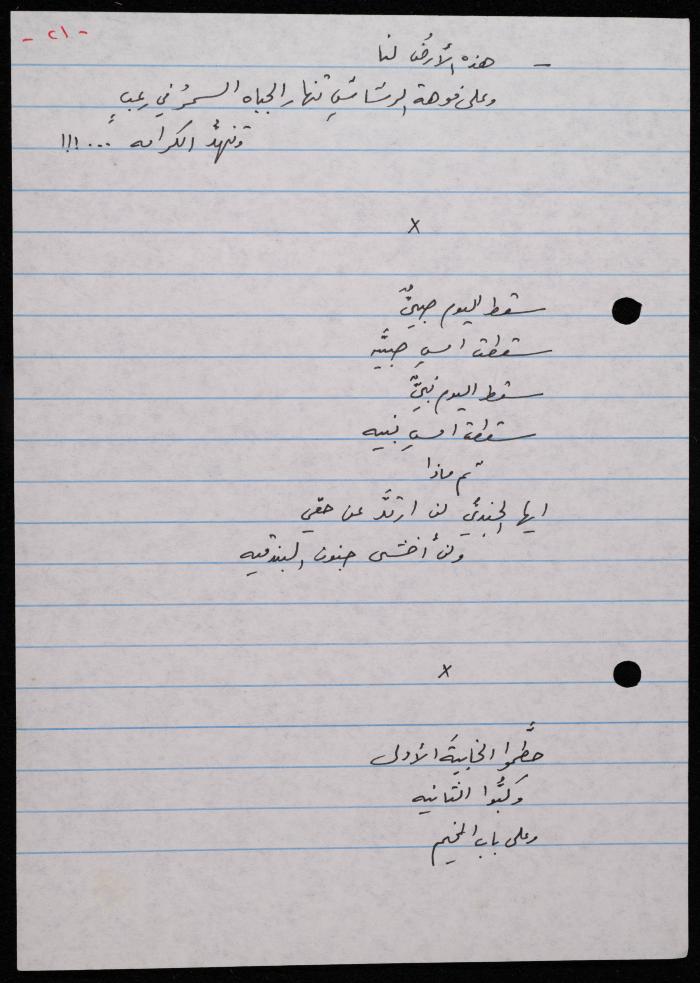 - ٢١ -
- هذه الأرضُ لنا
وعلى فوهة الرشاشِ تنهار الجباه السمرُ في رعبٍ
وتنهدُّ الكرامه ...!!!
x
سقط اليوم صبيٌّ
سقطت امسِ صبيَّه
سقط اليوم نبيٌّ
سقطت امسِ نبيه
ثم ماذا
ايها الجنديُّ لن ارتدَّ عن حقي
ولن أخشى جنون البندقيه
x
حطَّموا الخابيةَ الأولى
وكبُّوا الثانيه
وعلى باب المخيم